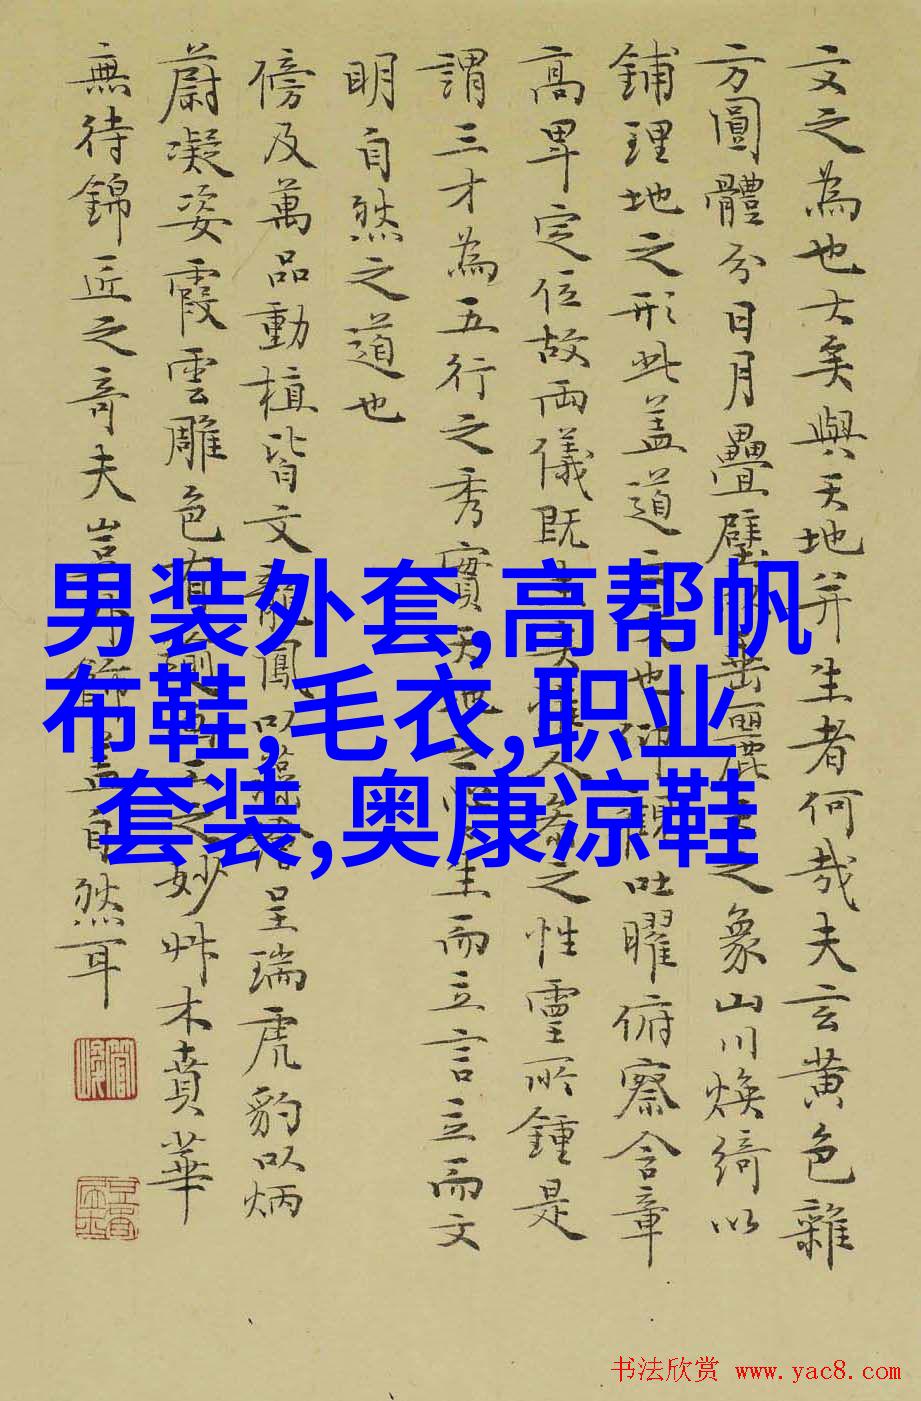 文之為也大矣與天地并生者何哉夫玄黄色雜
方圓體分日月疊璧垂麗之象山川煥綺以
鋪理地之形此盖道也吐曜俯察含章
高卑定位故兩儀既人參之性靈所鍾是
謂三才為五行之秀實天地之生而立言立而文
明自然之道也
傍及萬品動植皆文龍鳳以呈瑞虎豹以炳
蔚凝姿霞雲雕色有之妙艸木賁華
無待錦匠之奇夫豈飾盖自然耳
男装外套,高帮帆
布鞋,毛衣,职业
套装,奥康凉鞋
书法欣赏 www.yac8.com